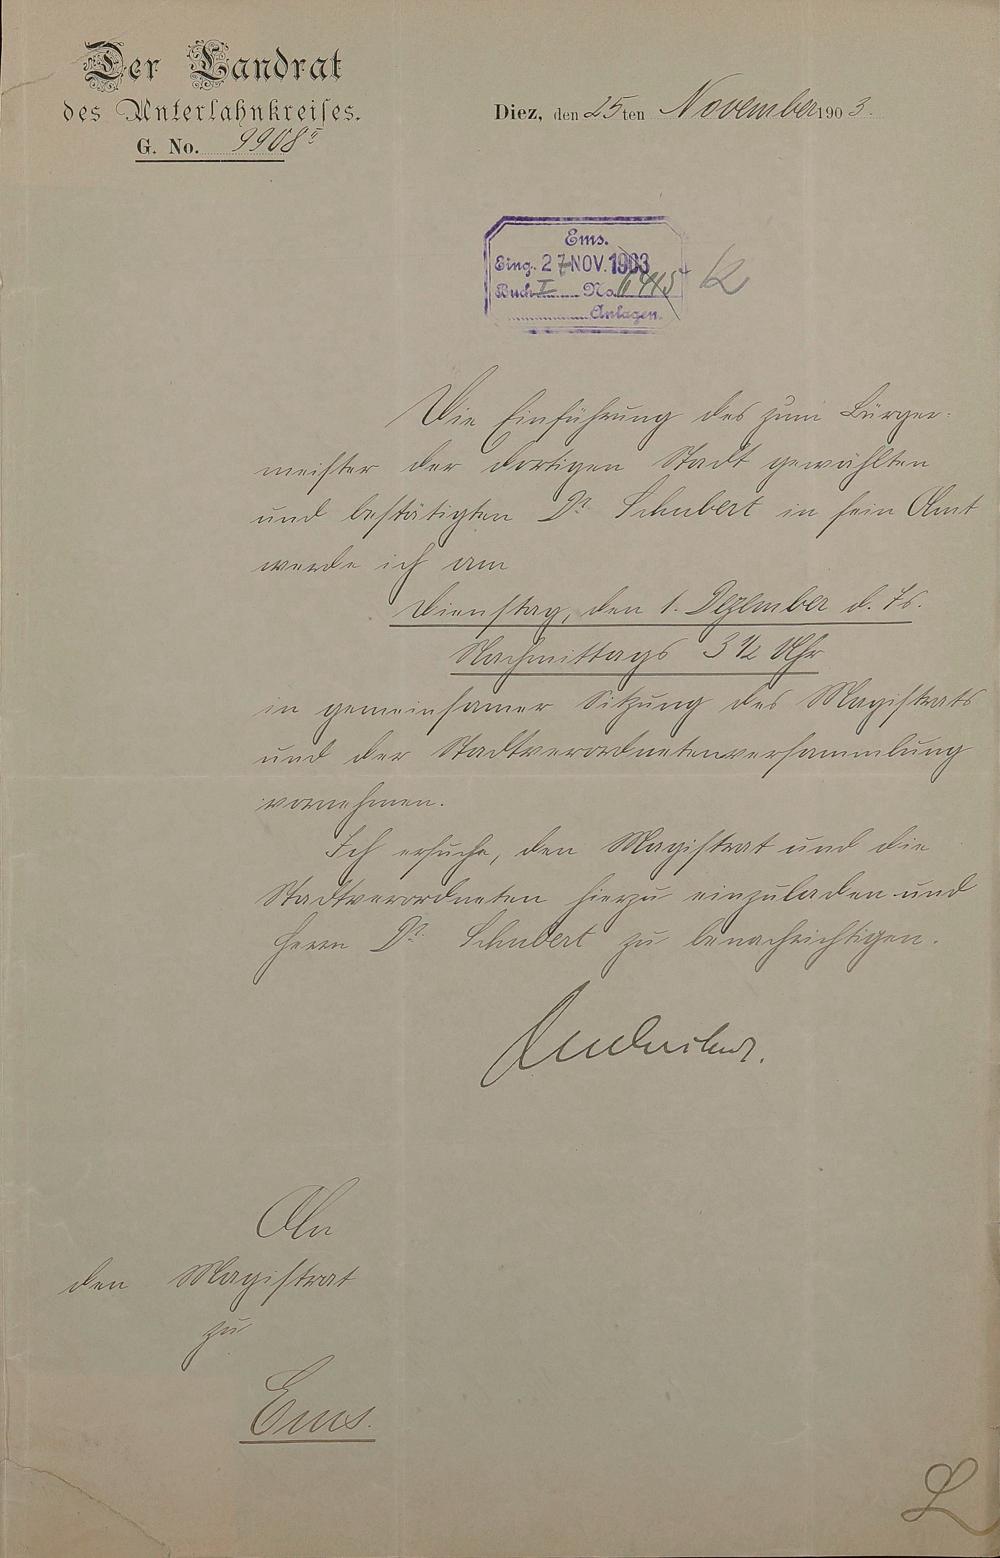 Der Landrat
des Unterlahnkreises.
G. No. 9908
Diez, den 25ten November 1903.
Ems.
Eing. 27 NOV. 1903
Buch I No. 6445
Anlagen.
Die Einführung des zum Bürger-
meister der dortigen Stadt gewählten
und bestätigten Dr. Schubert in sein Amt
werde ich am
Dienstag, den 1. Dezember d. Js.
Nachmittags 3 1/2 Uhr
in gemeinsamer Sitzung des Magistrats
und der Stadtverordnetenversammlung
vornehmen.
Ich ersuche, den Magistrat und die
Stadtverordneten hierzu einzuladen und
Herrn Dr. Schubert zu benachrichtigen.
An
den Magistrat
zu
Ems.